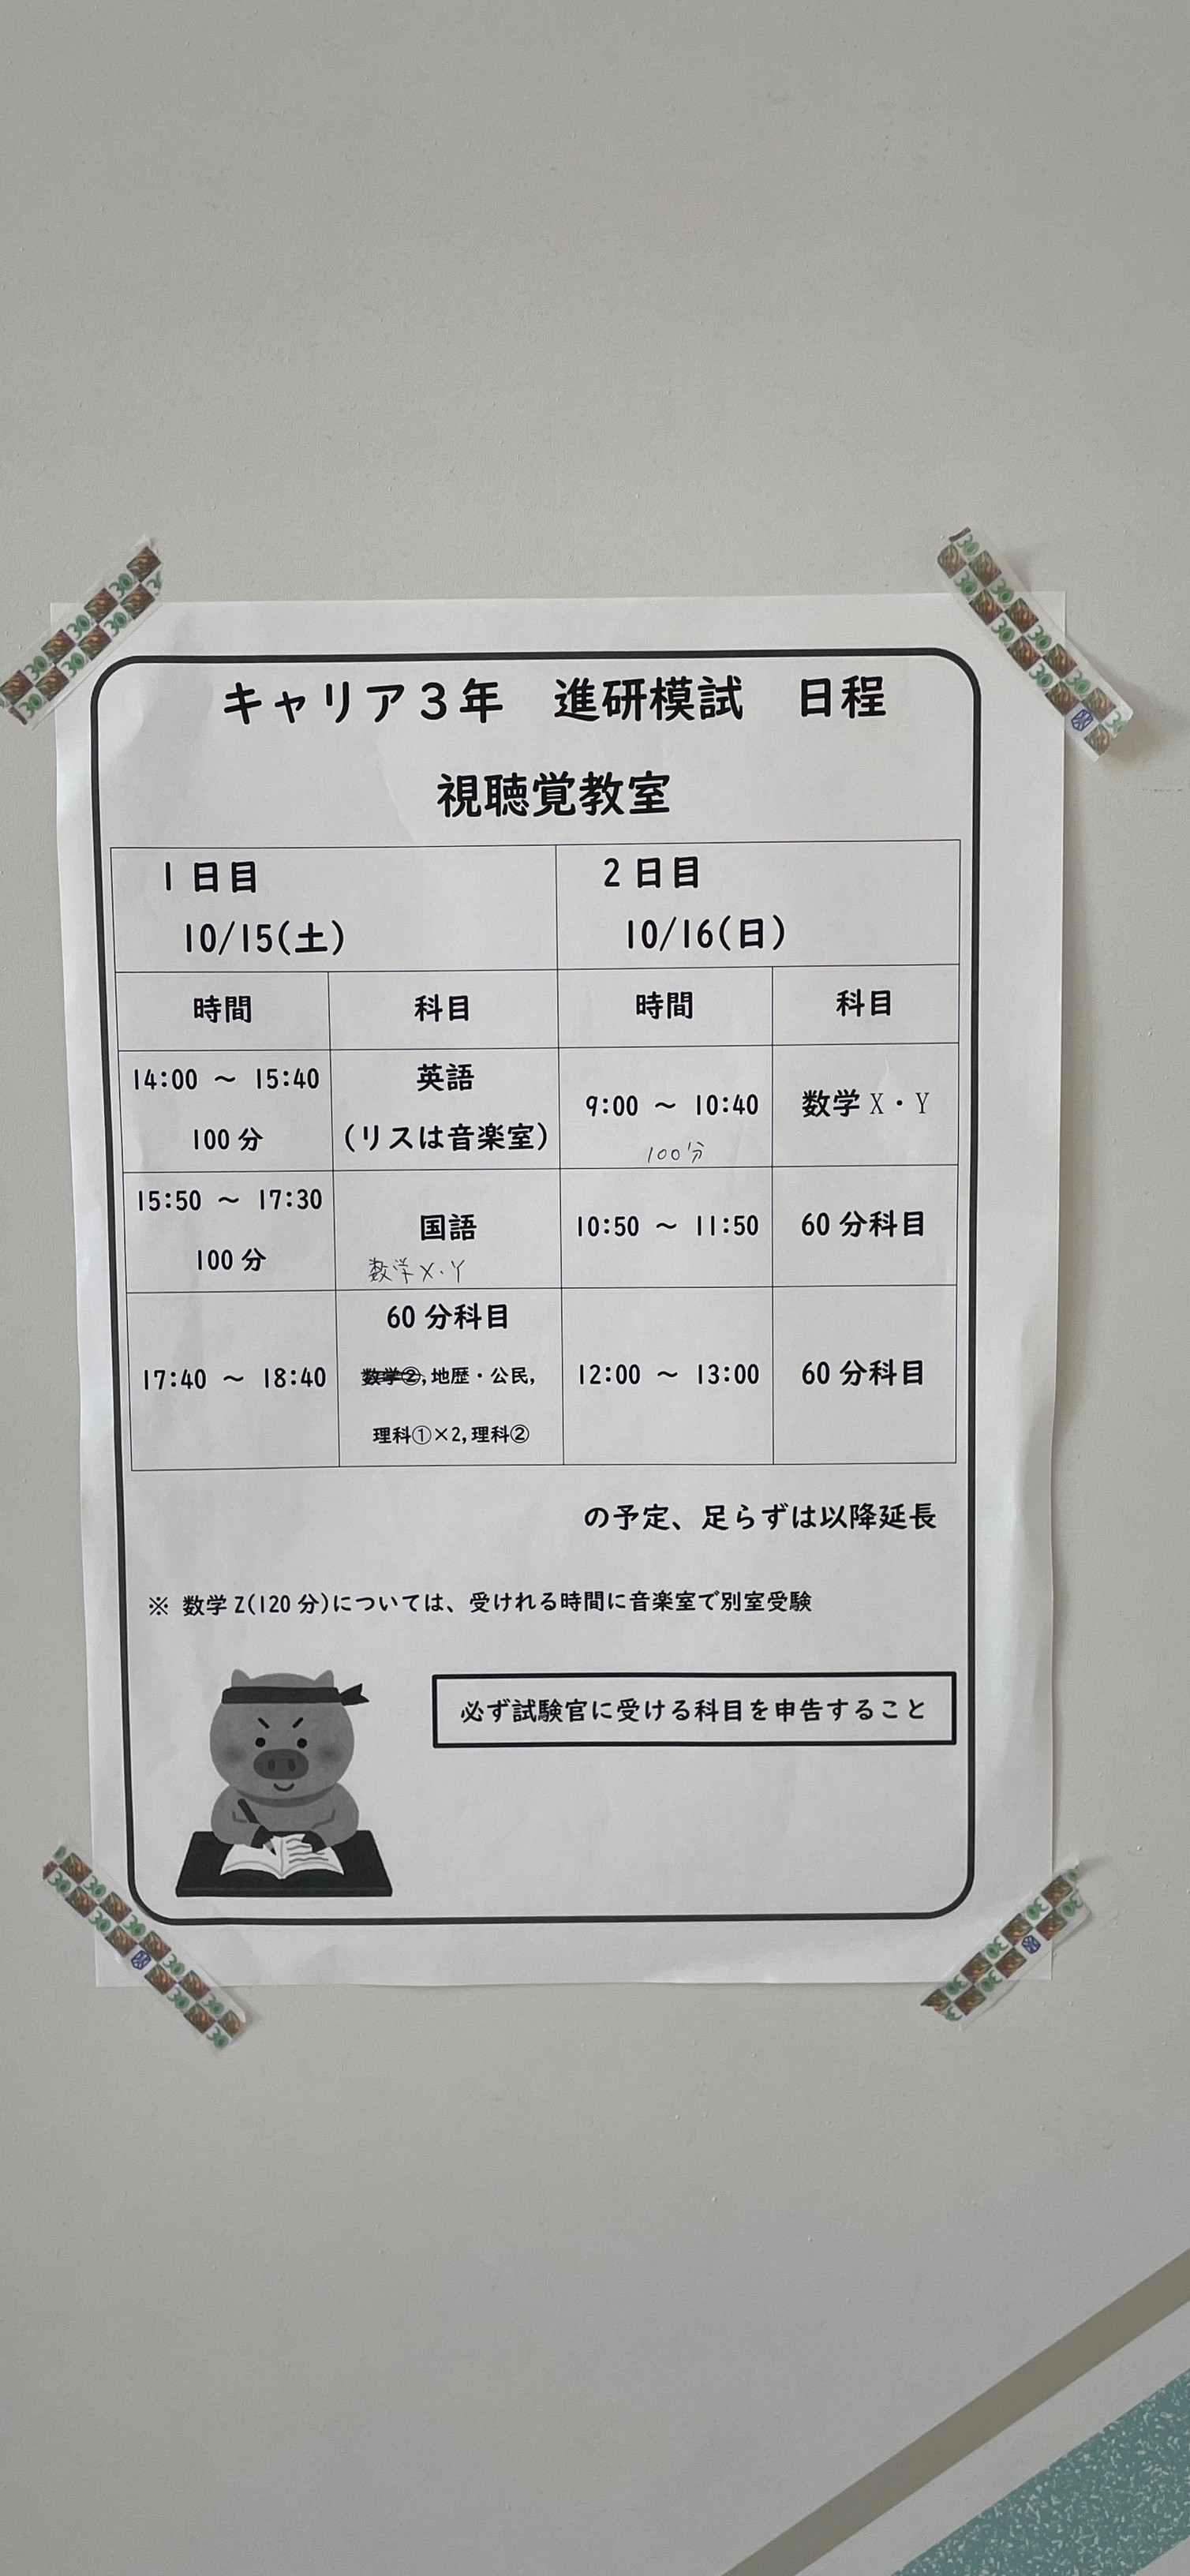 キャリア3年　進研模試　日程
視聴覚教室
1日目
10/15(土)
2日目
10/16(日)
時間
科目
時間
科目
14:00 ～ 15:40
100分
英語
(リスは音楽室)
9:00 ～ 10:40
100分
数学X・Y
15:50 ～ 17:30
100分
国語
数学X・Y
10:50 ～ 11:50
60分科目
17:40 ～ 18:40
60分科目
数学②,地歴・公民,
理科①×2,理科②
12:00 ～ 13:00
60分科目
の予定、足らずは以降延長
※ 数学Z(120分)については、受けれる時間に音楽室で別室受験
必ず試験官に受ける科目を申告すること